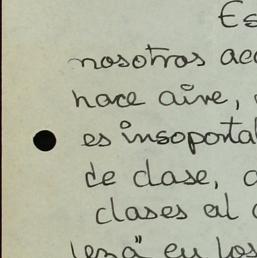 Es
nosotros aco
hace aire,
es insoportal
de clase, a
clases al
en los